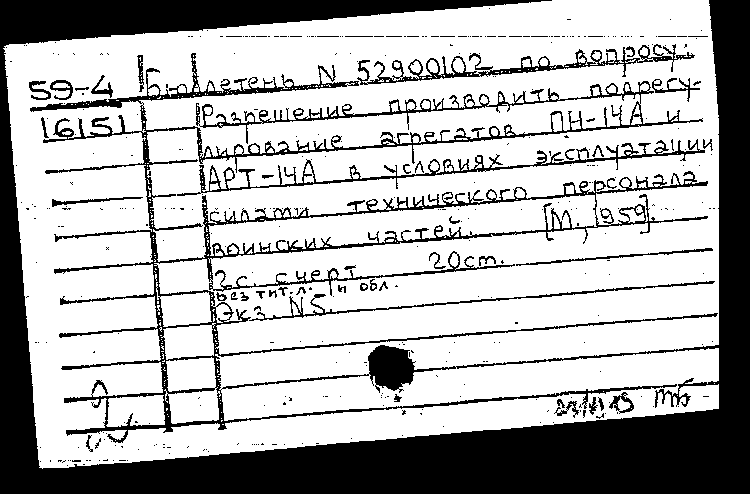 59-4 Бюллетень N 52900102 по вопросу:
16151 Разрешение производить подрегу-
лирование агрегатов ПН-14А и
АРТ-14А в условиях эксплуатации
силами технического персонала
воинских частей. [М., 1959].
2с. с черт 20 см.
без тит. л. и обл.
Экз. N5.